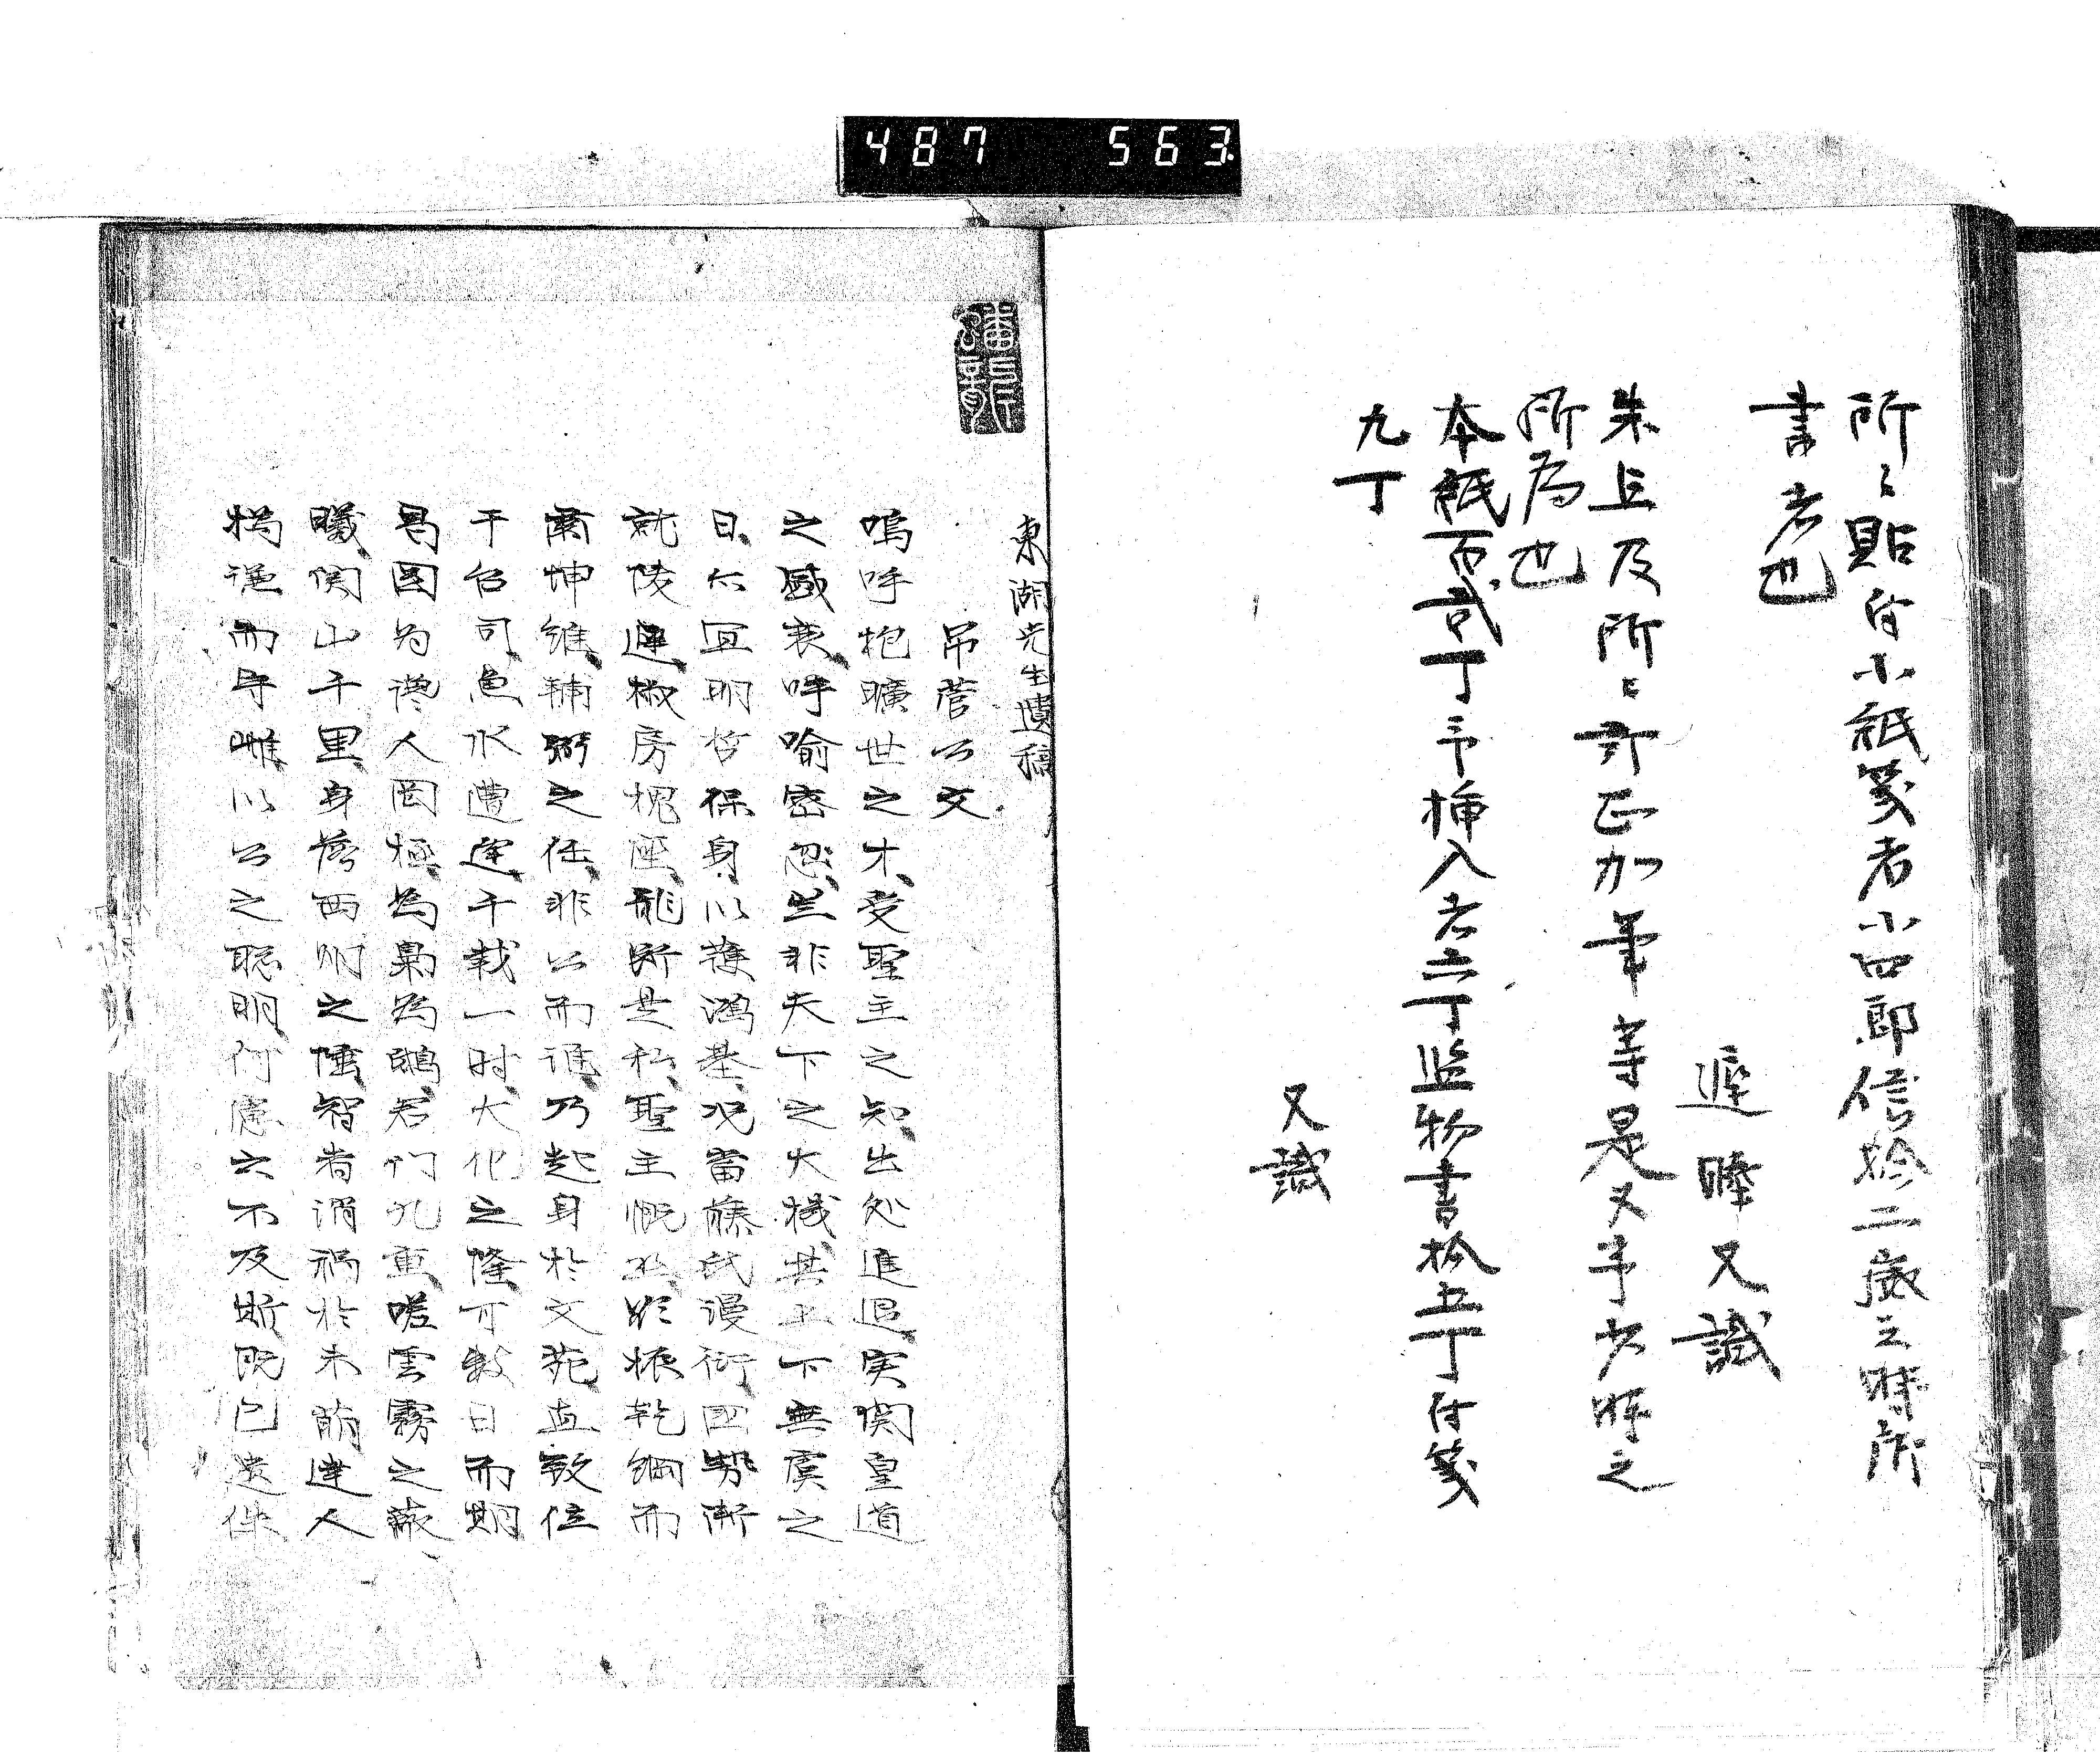 487 563
所々貼付小紙箋者小四郎信拾二歳之時所
書者也
遅畔又識
朱点及所々訂正加筆等是又予少時之
所為也
本紙百弐丁予挿入者六丁監物書拾五丁付箋
九丁
又識
東湖先生遺稿
吊菅公文
嗚呼抱曠世之才受聖主之知出処進退実関皇道
之盛衰呼喻密忽豈非天下之大機其上下無虞之
日亦宜明哲保身以護鴻基况當藤氏謾衍国勢漸
就陵遅椒房槐座龍断是私聖主慨然欲振乾綱而
肅坤維輔弼之任非公而誰乃起身於文苑直致位
于台司魚水遭逢千載一时大化之隆可数日而期
曷图为讒人罔極為梟為鴟君门九重嗟雲霧之蔽
曦関山千里身落西州之陲智者消禍於未萠達人
撝謙而守雌以公之聡明何慮之不及斯既已遺佚